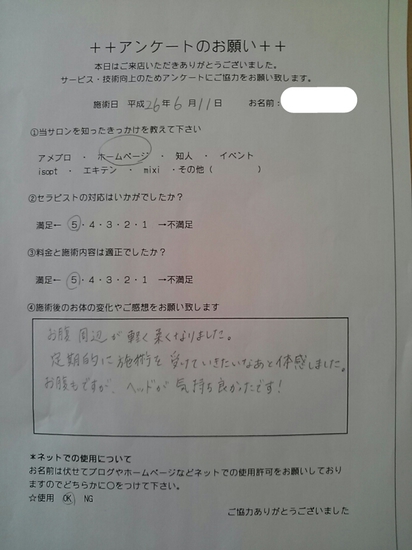 ++アンケートのお願い++
本日はご来店いただきありがとうございました。
サービス・技術向上のためアンケートにご協力をお願い致します。
施術日 平成26年6月11日 お名前：
①当サロンを知ったきっかけを教えて下さい
アメブロ ・ ホームページ ・ 知人 ・ イベント
isopt ・ エキテン ・ mixi ・その他（ ）
②セラピストの対応はいかがでしたか？
満足← 5・4・3・2・1 →不満足
③料金と施術内容は適正でしたか？
満足← 5・4・3・2・1 →不満足
④施術後のお体の変化やご感想をお願い致します
お腹周辺が軽く柔くなりました。
定期的に施術を受けていきたいなあと体感しました。
お腹もですが、ヘッドが気持ち良かったです！
＊ネットでの使用について
お名前は伏せてブログやホームページなどネットでの使用許可をお願いしており
ますのでどちらかに○をつけて下さい。
☆使用 OK NG
ご協力ありがとうございました